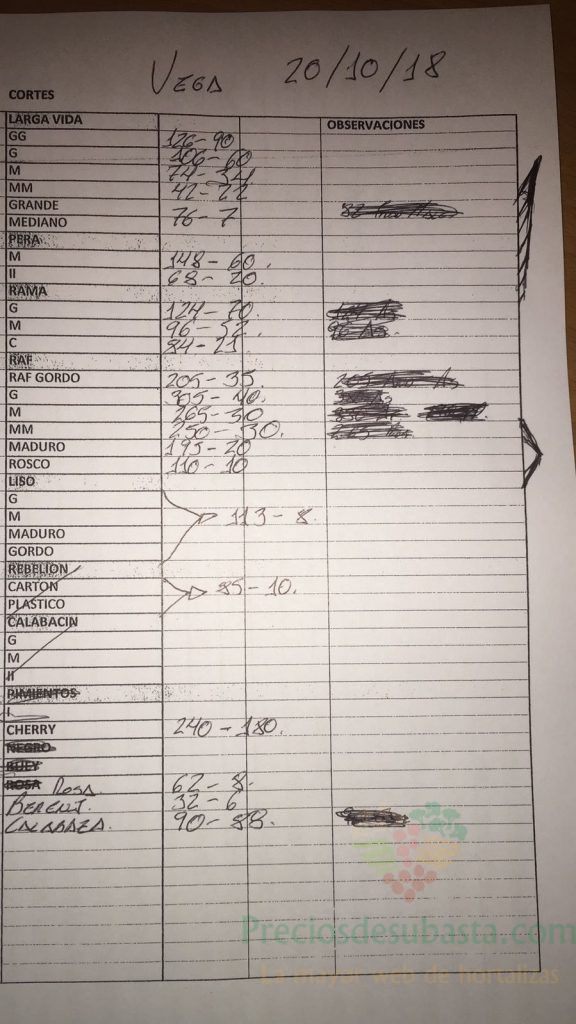 VEGA 20/10/18
CORTES
LARGA VIDA OBSERVACIONES
GG 126-90
G 106-60
M 74-34
MM 42-22
GRANDE
MEDIANO 76-7
PERA
M 148-60.
II 68-20.
RAMA
G 124-70.
M 96-52
C 84-21
RAF
RAF GORDO 205-35.
G 305-40.
M 265-30
MM 250-30.
MADURO 195-20
ROSCO 110-10
LISO
G
M 113-8.
MADURO
GORDO
REBELION
CARTON 85-10.
PLASTICO
CALABACIN
G
M
II
PIMIENTOS
I
CHERRY 240-180.
NEGRO
BUEY
ROSA ROSA 62-8.
BERENJ. 32-6
CALABAZA. 90-88.
Preciosdesubasta.com
La mayor web de hortalizas